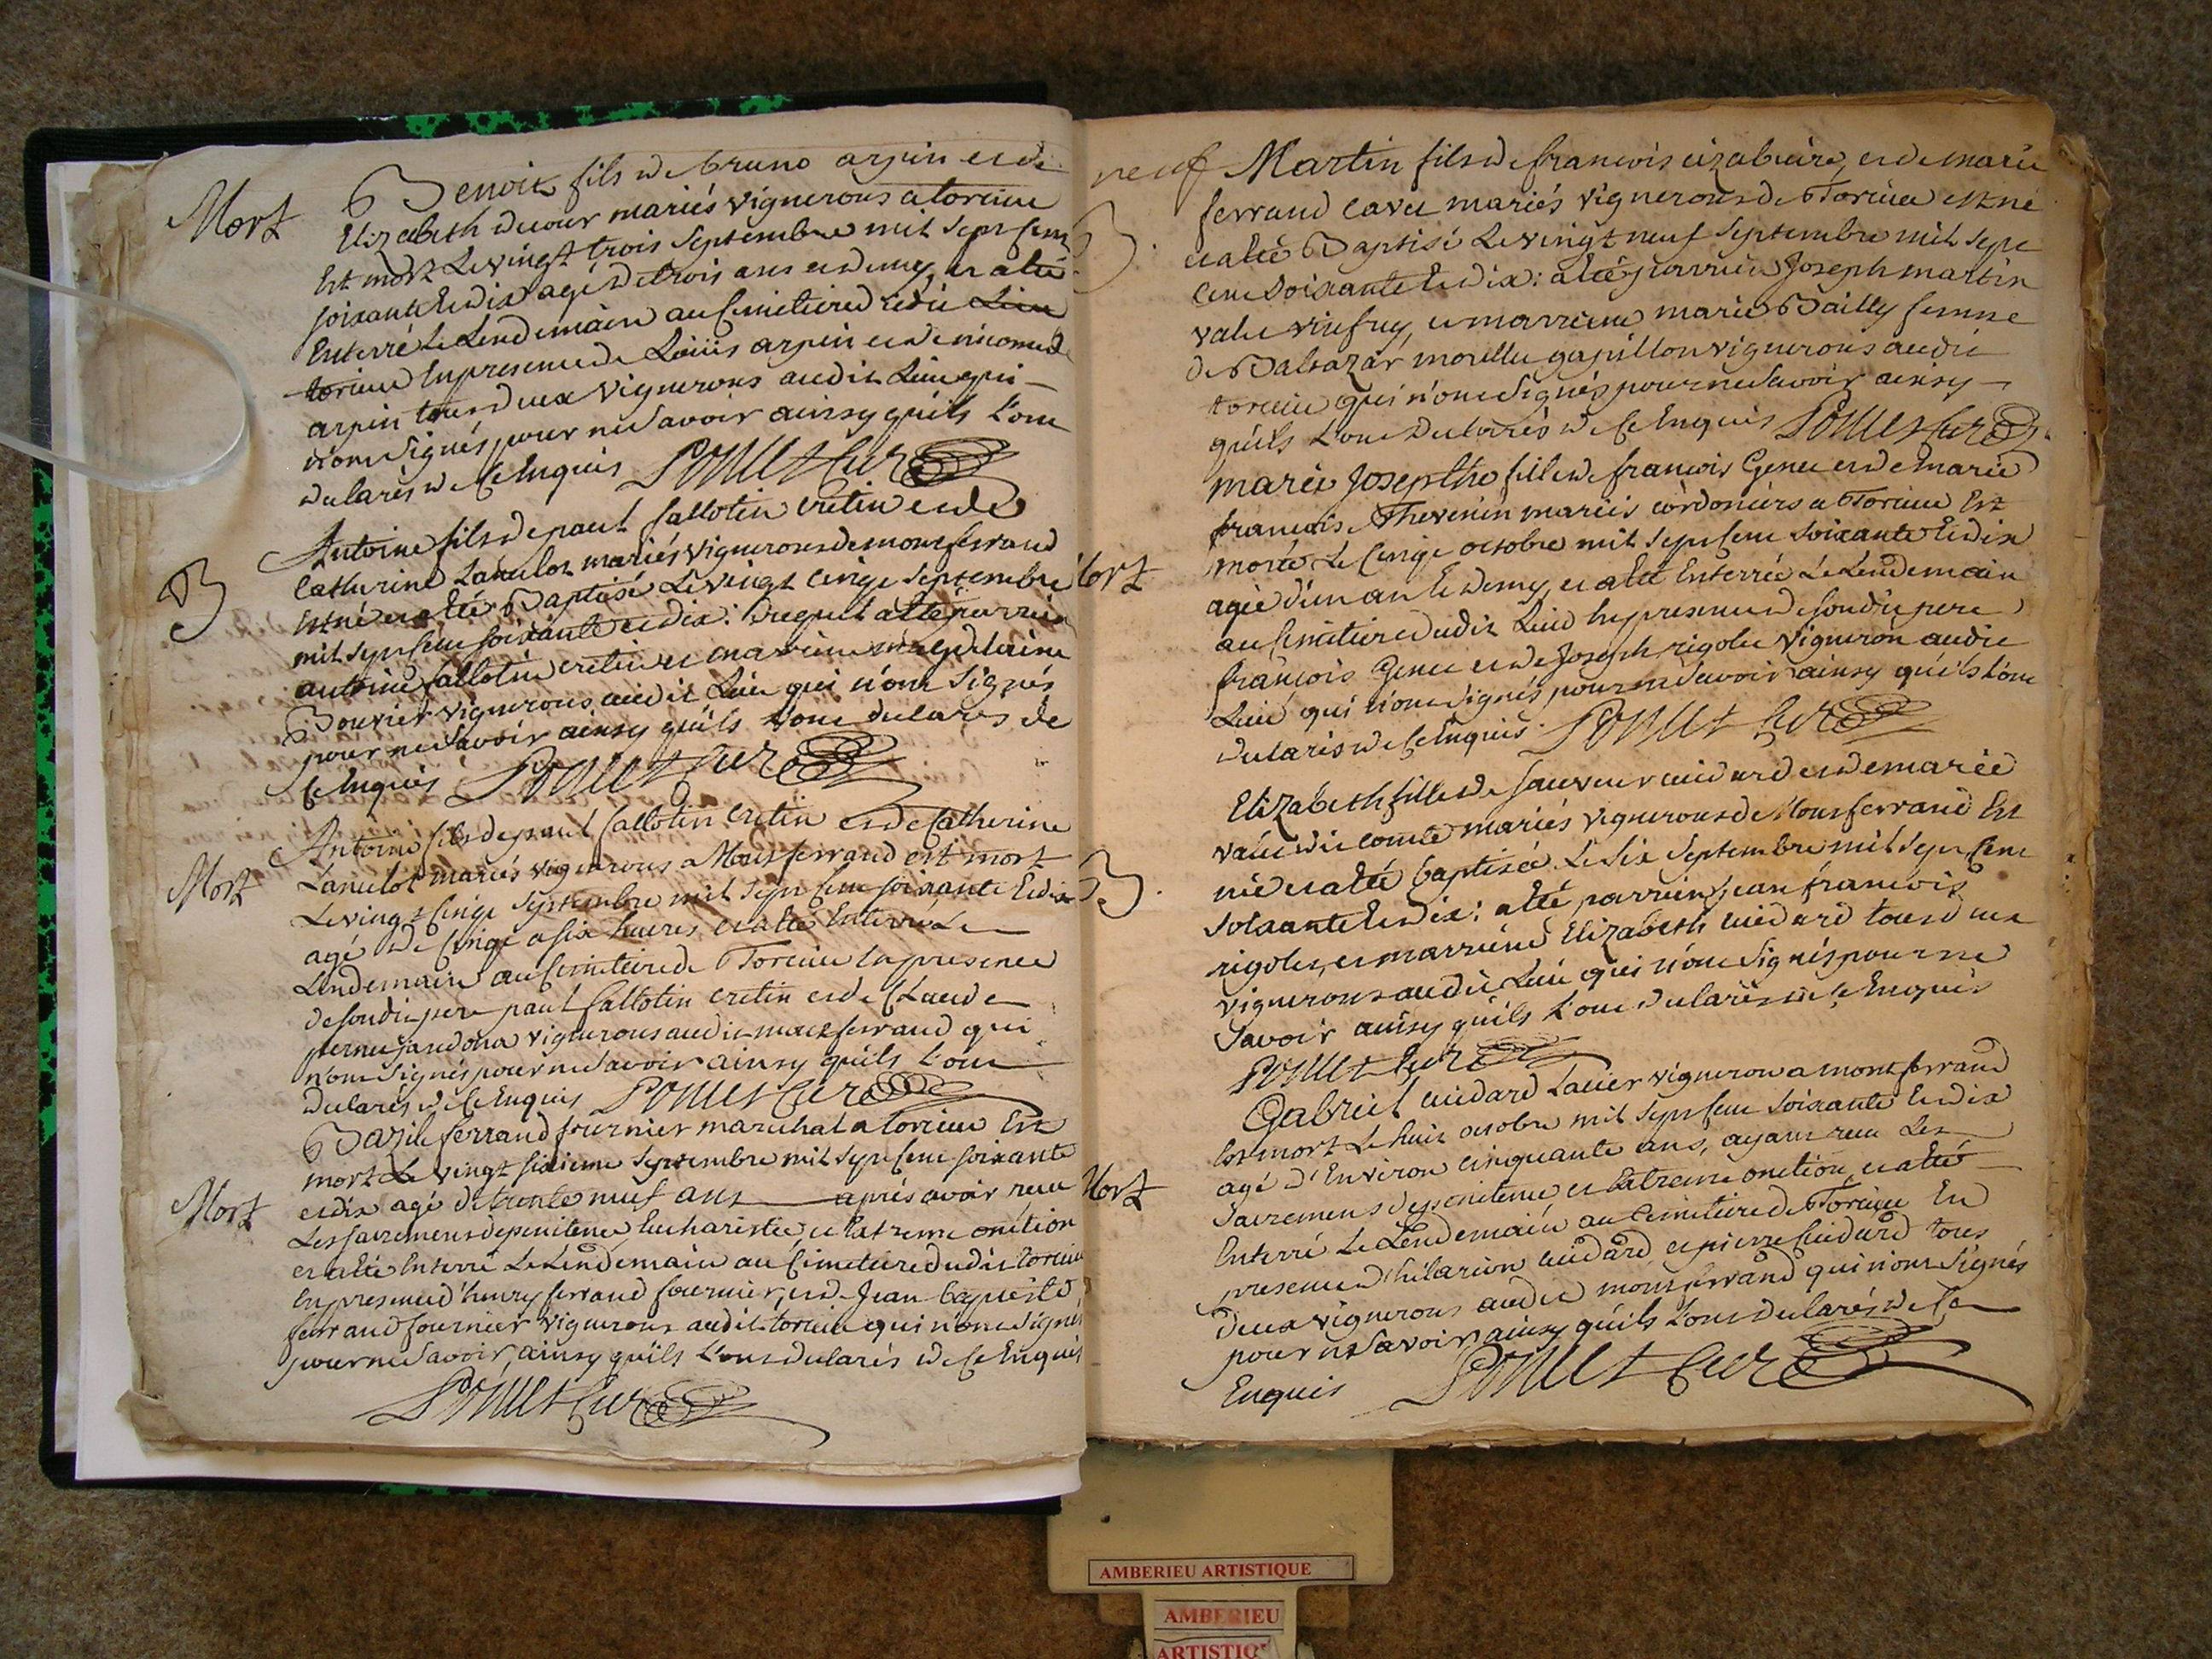 Mort
Benoit fils de bruno arpin et de
Elizabeth mariés vignerons a torcieu
Est mort Le vingt trois Septembre mil Sept Cent
soixante et dix agé de trois ans et demy, et a eté
Enterré Le Lendemain au Cimetiere dudit Lieu
torcieu En presence de Loüis arpin et de
arpin tous deux vignerons audit Lieu qui
n'ont Signés pour ne Savoir ainsy quils L'ont
declarés de Ce Enquis Ponnet Curé
B
Antoine fils de paul Callotin cretin et de
Catherine Lancelot mariés vignerons de montferrand
Est né et a eté Baptisé Le vingt Cinq Septembre
mil Sept Cent soixante et dix: Duquel a eté parrain
antoine Callotin cretin et marraine magdelaine
Bouvier vignerons audit Lieu qui n'ont Signés
pour ne Savoir ainsy quils L'ont declarés de
Ce Enquis Ponnet Curé
Mort
Antoine fils de paul Callotin Cretin et de Catherine
Lancelot mariés vignerons a Montferrand est mort
Le vingt Cinq Septembre mil Sept Cent soixante Et dix
agé de Cinq a six heures et a eté Enterré Le
Lendemain au Cimetiere de Torcieu En presence
de Sondit pere paul Callotin cretin et de Claude
vignerons audit montferrand qui
n'ont Signés pour ne Savoir ainsy quils L'ont
declarés de Ce Enquis Ponnet Curé
Mort
Bazile ferrand fournier marechal a torcieu Est
mort Le vingt sixieme Septembre mil Sept Cent soixante
et dix agé de trente neuf ans aprés avoir recu
Les sacremens de penitence, Eucharistie, et Extreme onction
et a eté Enterré Le Lendemain au Cimetiere dudit torcieu
En presence d'henry ferrand fournier, et de Jean baptiste
ferrand fournier vignerons audit torcieu qui n'ont Signés
pour ne Savoir, ainsy quils L'ont declarés de Ce Enquis
Ponnet Curé
neuf
B.
Martin fils de francois et de marie
ferrand cavet mariés vignerons de Torcieu est né
et a eté Baptisé Le vingt neuf Septembre mil Sept
Cent Soixante Et dix: a eté parrain Joseph martin
et marraine marie Bailly femme
de Baltazar gapillon vignerons audit
torcieu qui n'ont Signés pour ne Savoir ainsy
quils L'ont declarés de Ce Enquis Ponnet Curé
Mort
marie Josepthe fille de francois Genet et de marie
francoise Thevenin mariés cordoniers a Torcieu Est
morte Le Cinq octobre mil Sept Cent Soixante Et dix
agée d'un an Et demy, et a eté Enterrée Le Lendemain
au Cimetiere dudit Lieu En presence de Sondit pere
françois Genet et de Joseph rigolet vigneron audit
Lieu qui n'ont Signés pour ne Savoir ainsy quils L'ont
declarés de Ce Enquis. Ponnet Curé
B.
Elizabeth fille de Sauveur cuidard et de marie
mariés vignerons de Montferrand Est
née et a eté baptisée Le Six Septembre mil Sept Cent
Soixante Et dix: a eté parrain Jean francois
rigolet, et marraine Elizabeth cuidard tous deux
vignerons audit Lieu qui n'ont Signés pour ne
Savoir ainsy quils L'ont declarés de Ce Enquis
Ponnet Curé
Mort
Gabriel cuidard vigneron a montferrand
Est mort Le huit octobre mil Sept Cent Soixante Et dix
agé d'Environ cinquante ans, ayant recu Les
Sacremens de penitence et Extreme onction, et a eté
Enterré Le Lendemain au Cimetiere de Torcieu En
presence d'hilarion cuidard et pierre Cuidard tous
deux vignerons audit montferrand qui n'ont Signés
pour ne Savoir, ainsy quils L'ont declarés de Ce
Enquis Ponnet Curé
AMBERIEU ARTISTIQUE
AMBERIEU
ARTISTIQ